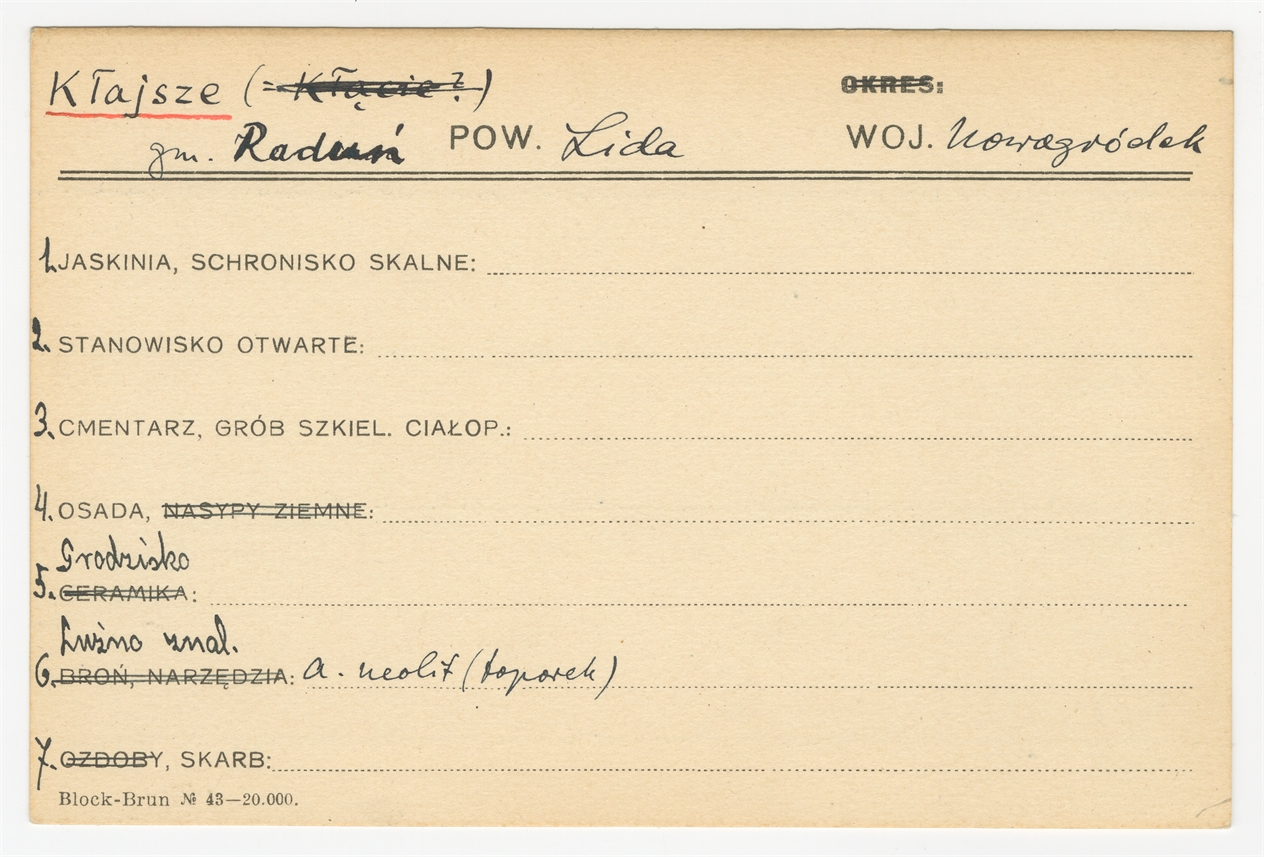 Kłajsze (= Kłącie?) OKRES:
gm. Raduń POW. Lida WOJ. Nowogródek
1. JASKINIA, SCHRONISKO SKALNE:
2. STANOWISKO OTWARTE:
3. CMENTARZ, GRÓB SZKIEL. CIAŁOP.:
4. OSADA, NASYPY ZIEMNE:
Grodzisko
5. CERAMIKA:
Luźno znal.
6. BROŃ, NARZĘDZIA: a. neolit (toporek)
7. OZDOBY, SKARB:
Block-Brun № 43—20.000.